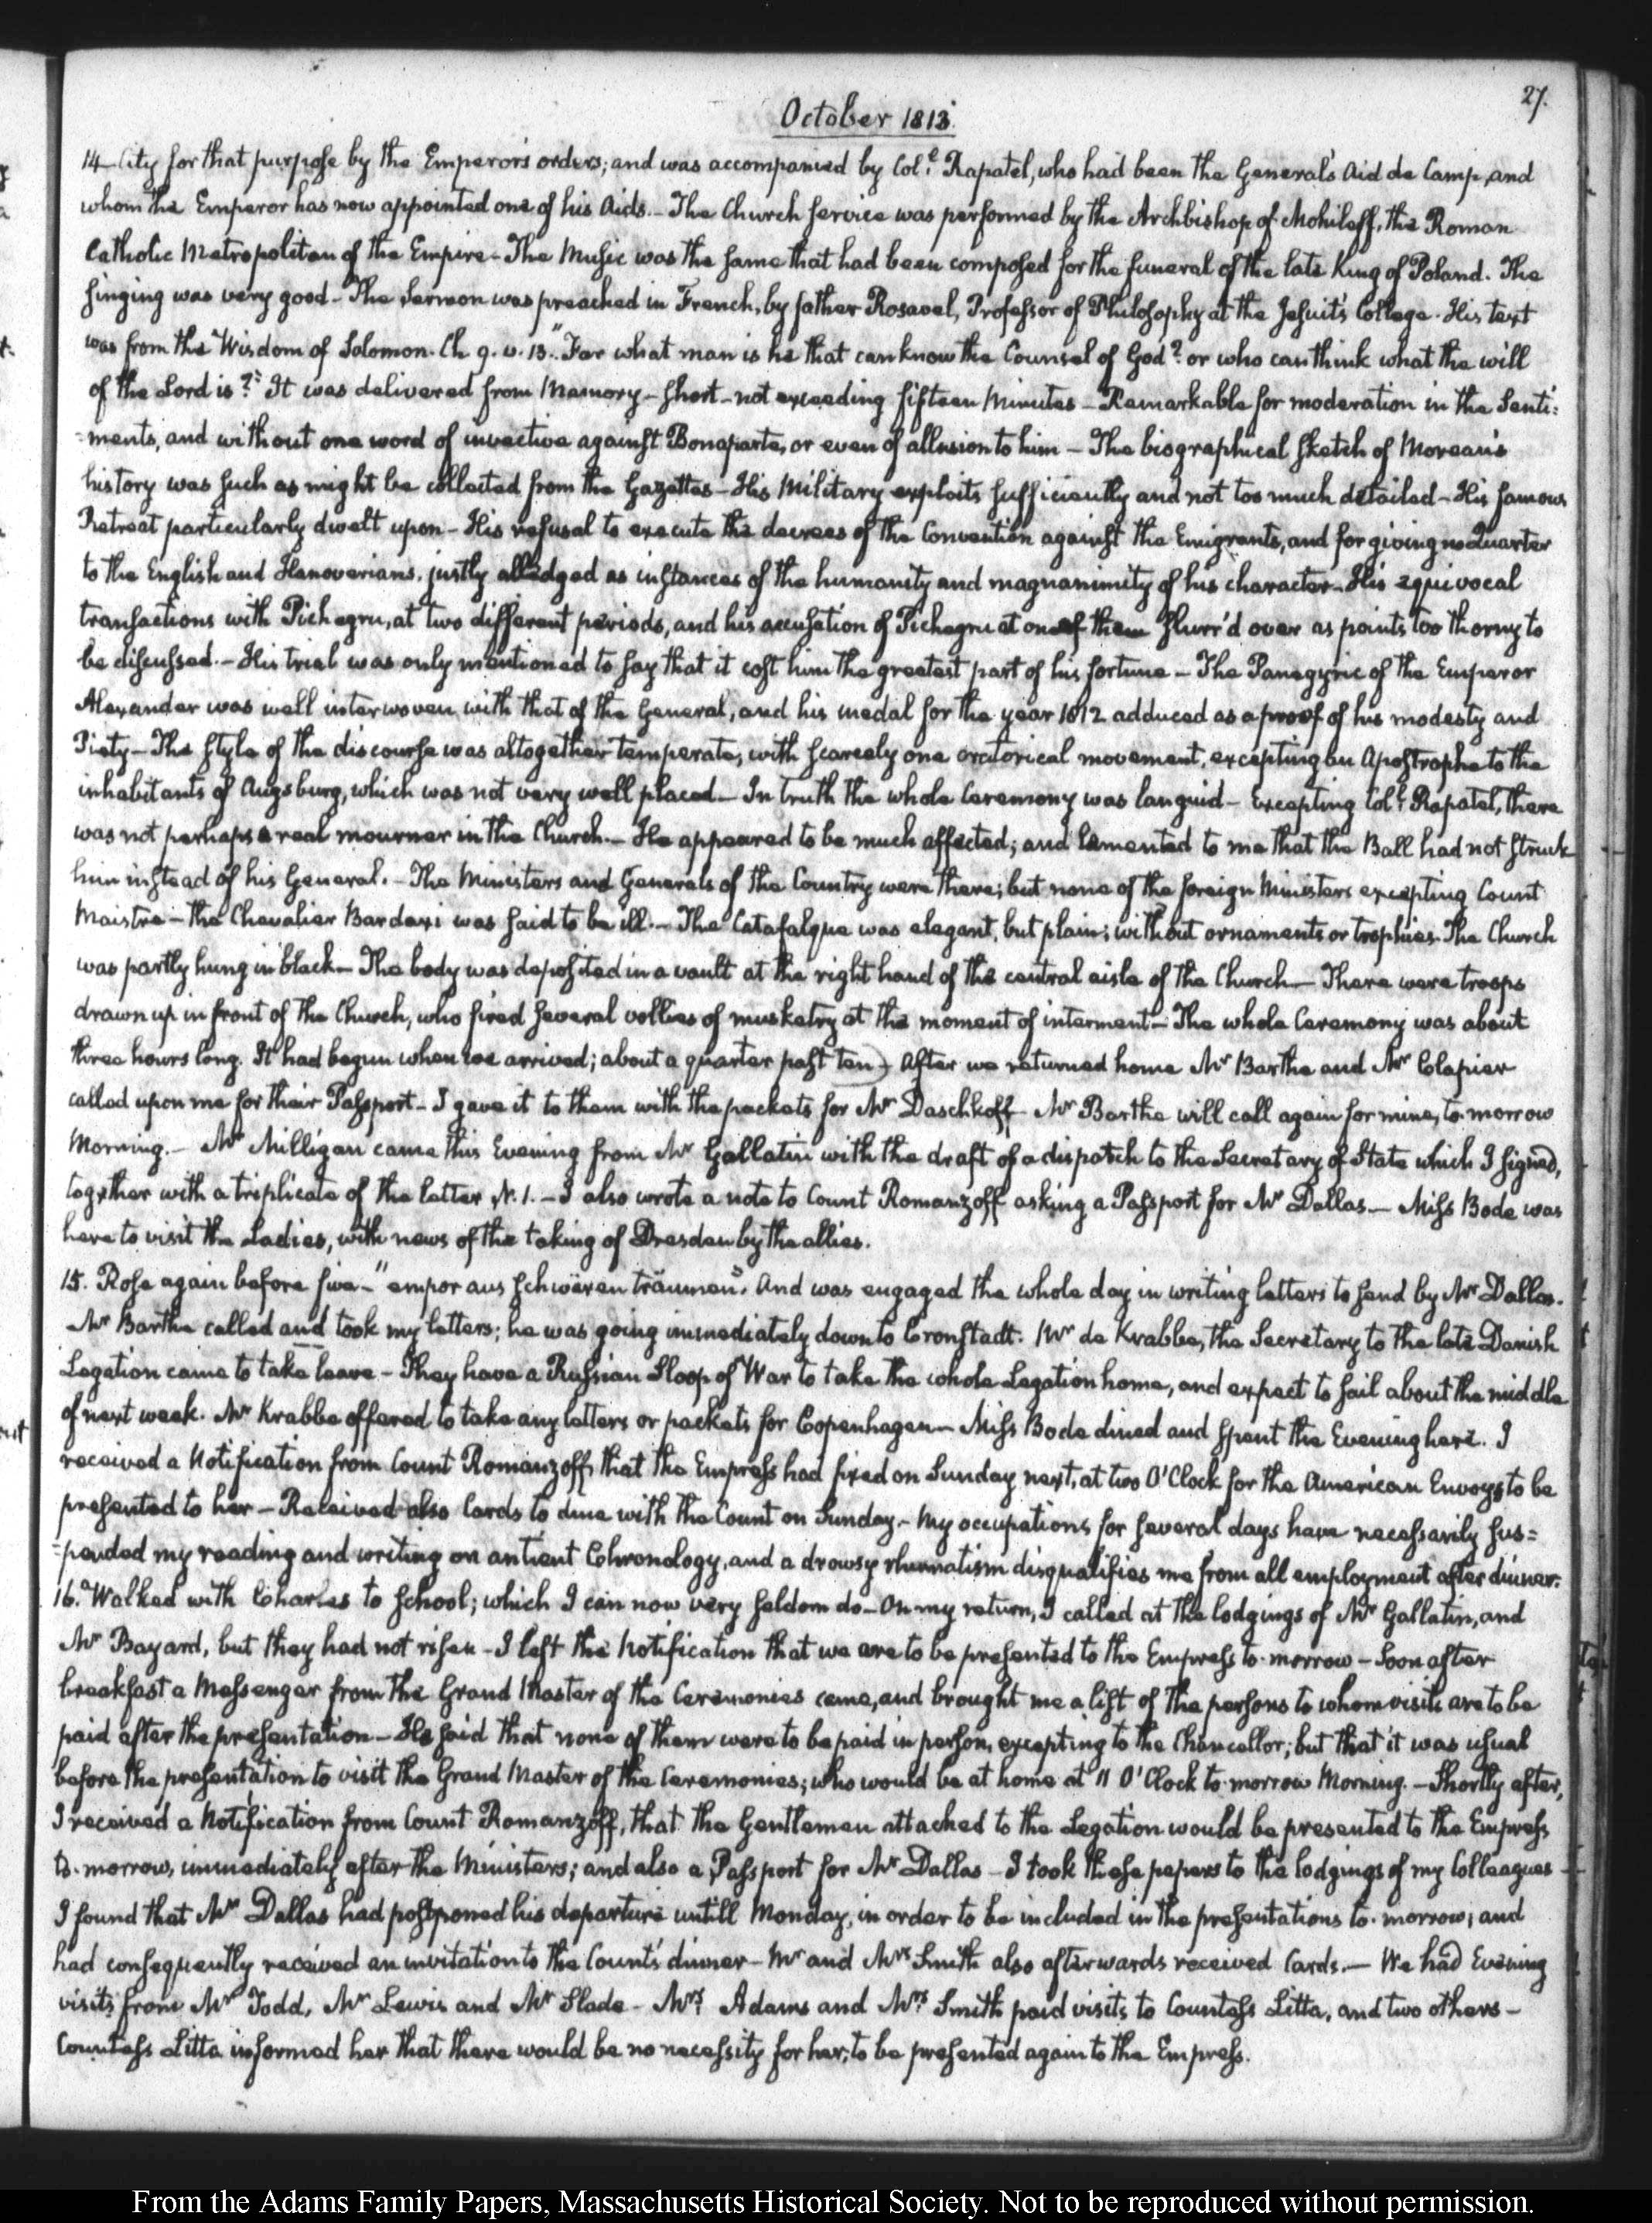 27.
October 1813.
14 City for that purpose by the Emperor's orders; and was accompanied by Col.l Rapatel, who had been the General's Aid de Camp, and
whom the Emperor has now appointed one of his Aids.— The Church service was performed by the Archbishop of Mohileff, the Roman
Catholic Metropolitan of the Empire— The Music was the same that had been composed for the funeral of the late King of Poland. The
singing was very good— The Sermon was preached in French, by father Rosavel, Professor of Philosophy at the Jesuit's College. His text
was from the Wisdom of Solomon. Ch. 9. v. 13. "For what man is he that can know the Counsel of God? or who can think what the will
of the Lord is?" It was delivered from Memory— short— not exceeding fifteen Minutes— Remarkable for moderation in the Senti=
=ments, and without one word of invective against Bonaparte, or even of allusion to him— The biographical sketch of Moreau's
history was such as might be collected from the Gazettes— His Military exploits sufficiently and not too much detailed— His famous
Retreat particularly dwelt upon— His refusal to execute the decrees of the Convention against the Emigrants, and for giving no Quarter
to the English and Hanoverians, justly alledged as instances of the humanity and magnanimity of his character— His equivocal
transactions with Pichegru, at two different periods, and his accusation of Pichegru at one of them slurr'd over as points too thorny to
be discussed.— His trial was only mentioned to say that it cost him the greatest part of his fortune— The Panegyric of the Emperor
Alexander was well interwoven with that of the General, and his medal for the year 1812 adduced as a proof of his modesty and
Piety— The style of the discourse was altogether temperate, with scarcely one oratorical movement, excepting an Apostrophe to the
inhabitants of Augsburg, which was not very well placed— In truth the whole Ceremony was languid— Excepting Col.l Rapatel, there
was not perhaps a real mourner in the Church.— He appeared to be much affected; and lamented to me that the Ball had not struck
him instead of his General.— The Ministers and Generals of the Country were there; but none of the foreign Ministers excepting Count
Maistre— the Chevalier Bardaxi was said to be ill.— The Catafalque was elegant, but plain; without ornaments or trophies. The Church
was partly hung in black— The body was deposited in a vault at the right hand of the central aisle of the Church— There were troops
drawn up in front of the Church, who fired several vollies of musketry at the moment of interment— The whole Ceremony was about
three hours long. It had begun when we arrived; about a quarter past ten) After we returned home Mr Barthe and Mr Clapier
called upon me for their Passport— I gave it to them with the packets for Mr Daschkoff— Mr Barthe will call again for mine, to-morrow
Morning.— Mr Milligan came this Evening from Mr Gallatin with the draft of a dispatch to the Secretary of State which I signed,
together with a triplicate of the letter N. 1.— I also wrote a note to Count Romanzoff asking a Passport for Mr Dallas— Miss Bode was
here to visit the Ladies, with news of the taking of Dresden by the allies.
15. Rose again before five— "empor aus schwären träumen". And was engaged the whole day in writing letters to send by Mr Dallas.
Mr Barthe called and took my letters; he was going immediately down to Cronstadt. Mr de Krabbe, the Secretary to the late Danish
Legation came to take leave— They have a Russian Sloop of War to take the whole Legation home, and expect to sail about the middle
of next week. Mr Krabbe offered to take any letters or packets for Copenhagen— Miss Bode dined and spent the Evening here. I
received a Notification from Count Romanzoff, that the Empress had fixed on Sunday next, at two O'Clock for the American Envoys to be
presented to her— Received also Cards to dine with the Count on Sunday.— My occupations for several days have necessarily sus=
=pended my reading and writing on antient Chronology, and a drowsy rheumatism disqualifies me from all employment after dinner.
16. Walked with Charles to School; which I can now very seldom do— On my return, I called at the lodgings of Mr Gallatin, and
Mr Bayard, but they had not risen— I left the Notification that we are to be presented to the Empress to-morrow— Soon after
breakfast a Messenger from the Grand Master of the Ceremonies came, and brought me a list of the persons to whom visits are to be
paid after the presentation— He said that none of them were to be paid in person, excepting to the Chancellor; but that it was usual
before the presentation to visit the Grand Master of the Ceremonies; who would be at home at 11 O'Clock to-morrow Morning.— Shortly after,
I received a Notification from Count Romanzoff, that the Gentlemen attached to the Legation would be presented to the Empress
to-morrow, immediately after the Ministers; and also a Passport for Mr Dallas— I took these papers to the lodgings of my Colleagues—
I found that Mr Dallas had postponed his departure untill Monday, in order to be included in the presentations to-morrow; and
had consequently received an invitation to the Count's dinner— Mr and Mrs Smith also afterwards received Cards.— We had Evening
visits from Mr Todd, Mr Lewis and Mr Slade— Mrs Adams and Mrs Smith paid visits to Countess Litta, and two others—
Countess Litta informed her that there would be no necessity for her, to be presented again to the Empress.
From the Adams Family Papers, Massachusetts Historical Society. Not to be reproduced without permission.